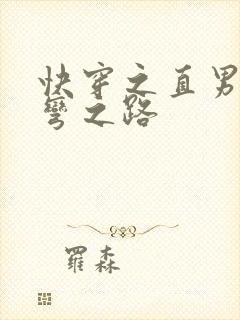 快穿之直男
彎之路
羅森